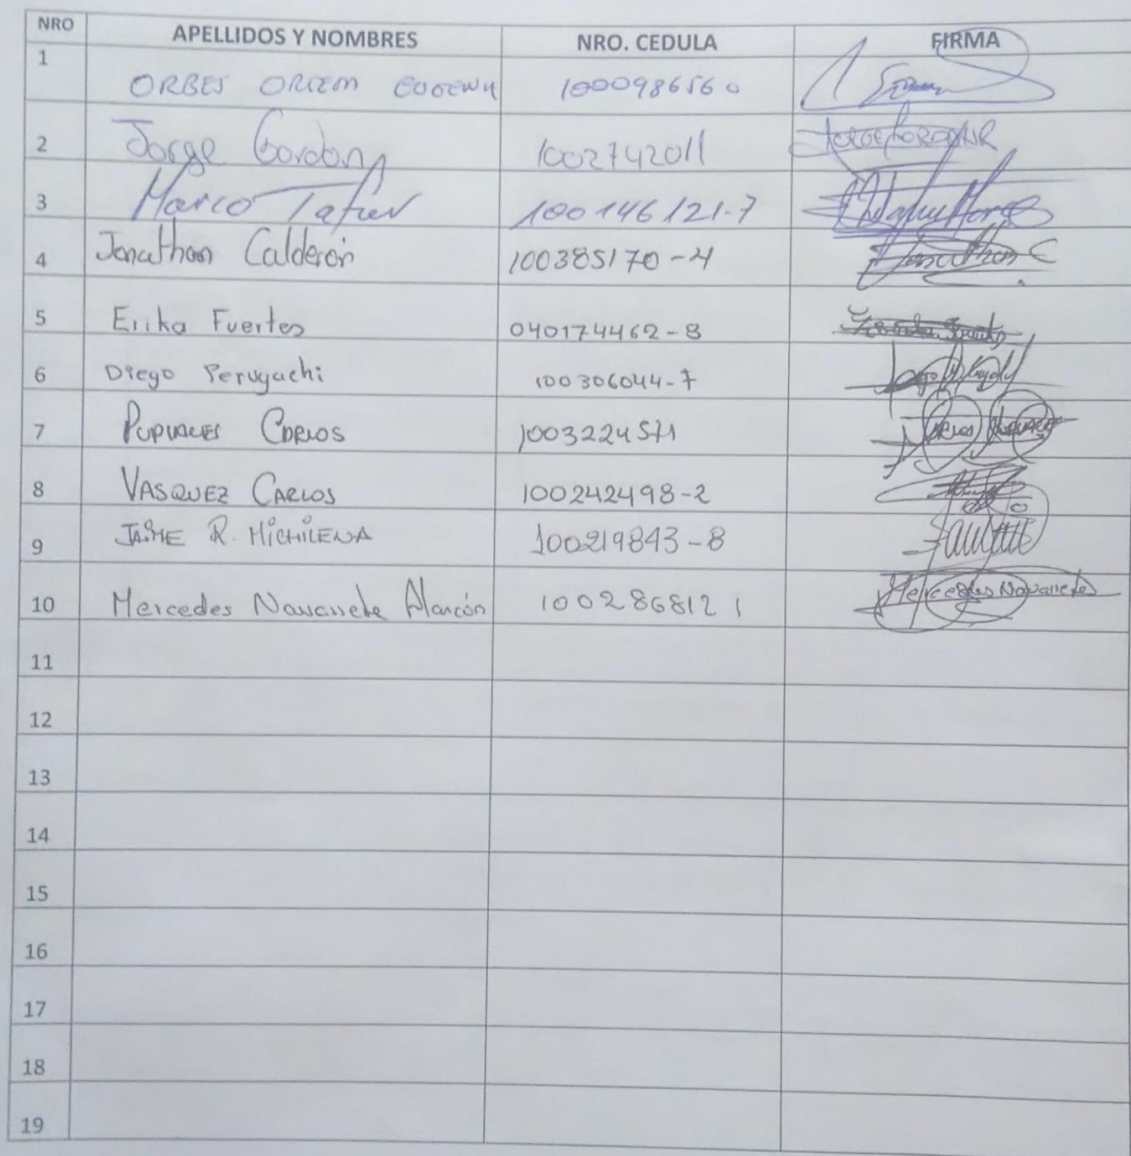 NRO APELLIDOS Y NOMBRES NRO. CEDULA FIRMA
1 ORBES 1000986560
2 Jorge Gordon 1002742011
3 Marco 100146121-7
4 Jonathan Calderón 100385170-4 Jonathan C
5 Erika Fuertes 040174462-8
6 Diego Perugachi 100306044-7
7 Carlos 1003224571 Carlos
8 VASQUEZ CARLOS 100242498-2
9 JAIME R. MiCHiLENA 100219843-8
10 Mercedes Navarrete Alarcón 1002868121 Mercedes Navarrete
11
12
13
14
15
16
17
18
19